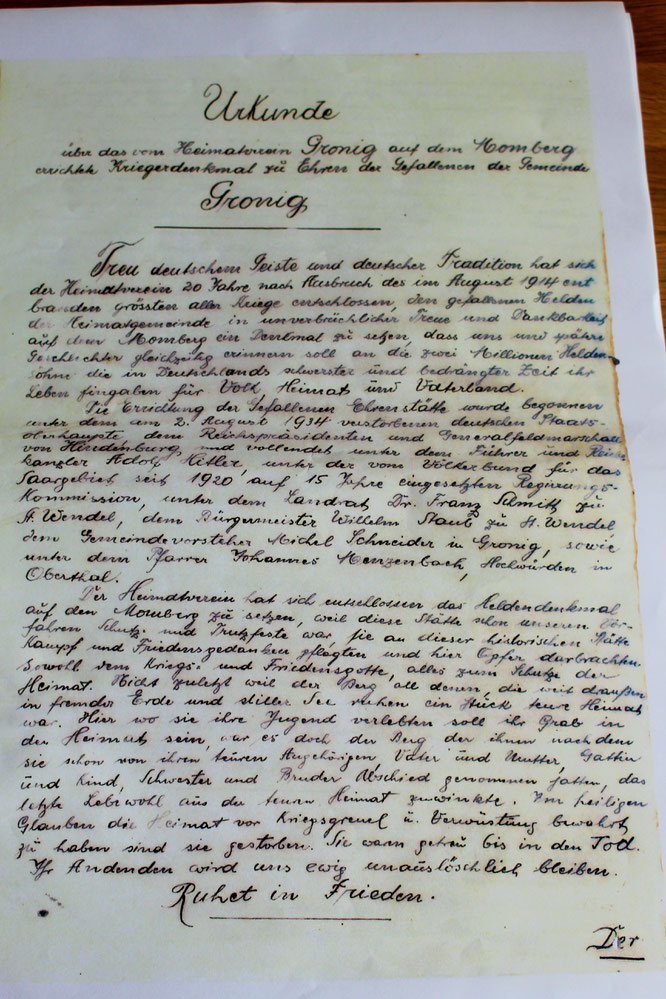 Urkunde
über das vom Heimatverein Gronig auf dem Momberg
errichtete Kriegerdenkmal zu Ehren der Gefallenen der Gemeinde
Gronig
Treu deutschem Geiste und deutscher Tradition hat sich
der Heimatverein 20 Jahre nach Ausbruch des im August 1914 ent
brannten grössten aller Kriege entschlossen, den gefallenen Helden
der Heimatgemeinde in unverbrüchlicher Treue und Dankbarkeit
auf dem Momberg ein Denkmal zu setzen, dass uns und spätere
Geschlechter gleichzeitig erinnern soll an die zwei Millionen Helden
söhne die in Deutschlands schwerster und bedrängter Zeit ihr
Leben hingaben für Volk Heimat und Vaterland.
Die Errichtung der Gefallenen Ehrenstätte wurde begonnen
unter dem am 2. August 1934 verstorbenen deutschen Staats-
oberhaupte dem Reichspräsidenten und Generalfeldmarschall
von Hindenburg und vollendet unter dem Führer und Reichs
kanzler Adolf Hitler, unter der vom Völkerbund für das
Saargebiet seit 1920 auf 15 Jahre eingesetzten Regierungs-
Kommission, unter dem Landrat Dr. Franz Schmitt zu
St. Wendel, dem Bürgermeister Wilhelm Staub zu St. Wendel
dem Gemeindevorsteher Michel Schneider in Gronig, sowie
unter dem Pfarrer Johannes Menzenbach, Hochwürden in
Oberthal.
Der Heimatverein hat sich entschlossen das Heldendenkmal
auf den Momberg zu setzen, weil diese Stätte schon unseren Vor-
fahren Schutz- und Trutzfeste war, sie an dieser historischen Stätte
Kampf und Friedensgedanken pflegten und hier Opfer darbrachten
sowohl dem Kriegs- und Friedensgotte, alles zum Schutze der
Heimat. Nicht zuletzt weil der Berg all denen, die weit draußen
in fremder Erde und stiller See ruhen ein Stück teure Heimat
war. Hier wo sie ihre Jugend verlebten soll ihr Grab in
der Heimat sein, war es doch der Berg der ihnen nachdem
sie schon von ihren teuren Angehörigen, Vater und Mutter, Gattin
und Kind, Schwester und Bruder Abschied genommen hatten, das
letzte Lebewohl aus der teuren Heimat zuwinkte. Im heiligen
Glauben die Heimat vor Kriegsgreuel u. Verwüstung bewahrt
zu haben sind sie gestorben. Sie waren getreu bis in den Tod.
Ihr Andenden wird uns ewig unauslöschlich bleiben.
Ruhet in Frieden.
Der